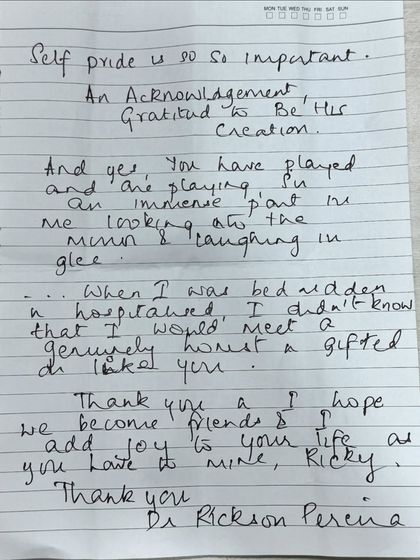 MON TUE WED THU FRI SAT SUN
Self pride is so so important.
An Acknowledgement,
Gratitud to Be His
Creation.
And yes, you have played
and are playing, Sir
an immense part in
me looking into the
mirror & laughing in
glee.
.... When I was bed ridden
n hospitalised, I didn't know
that I would meet a
genuinely honest n gifted
dr like you.
Thank you & I hope
we become friends & I
add joy to your life as
you have to mine, Ricky.
Thank you
Dr Rickson Pereira